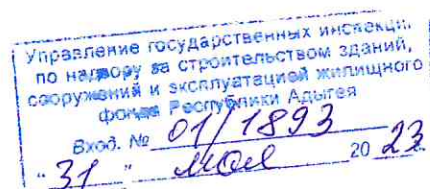 Управление государственных инспекций
по надзору за строительством зданий,
сооружений и эксплуатацией жилищного
фонда Республики Адыгея
Вход. № 01/1893
"31" мая 2023